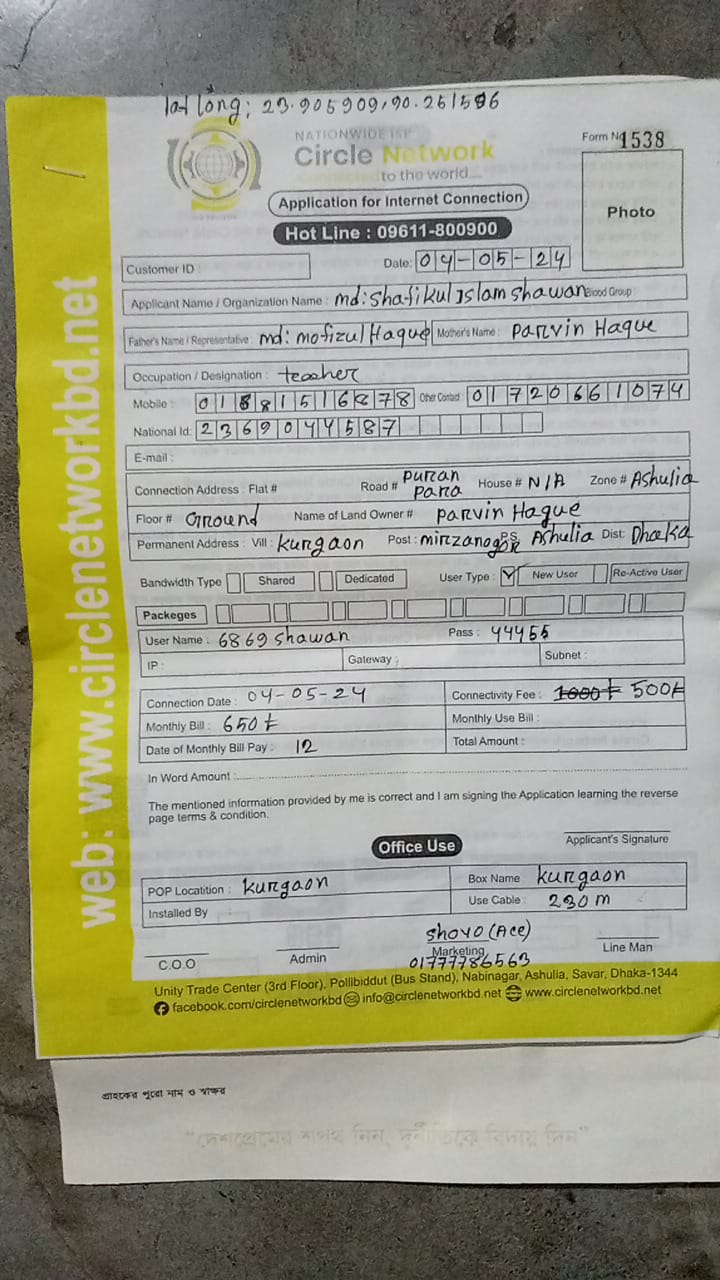 lat long: 23.905909,90.261596
NATIONWIDE ISP
Circle Network
to the world...
Form No 1538
Photo
Application for Internet Connection
Hot Line : 09611-800900
Customer ID :
Date: 04-05-24
Applicant Name / Organization Name : md: Shafikul Islam Shawan Blood Group :
Father's Name / Representative : md: mofizul Haque Mother's Name : Parvin Haque
Occupation / Designation : teacher
Mobile : Other Contact : 01720661074
National Id: 2369044587
E-mail :
Connection Address : Flat # Road # Puran Para House # N/A Zone # Ashulia
Floor # Ground Name of Land Owner # Parvin Haque
Permanent Address : Vill : Kurgaon Post : mirzanagar P.S Ashulia Dist: Dhaka
Bandwidth Type Shared Dedicated User Type : ✓ New User Re-Active User
Packeges
User Name : 6869 shawan Pass : 44455
IP : Gateway : Subnet :
Connection Date : 04-05-24 Connectivity Fee : 1000t 500t
Monthly Bill : 650t Monthly Use Bill :
Date of Monthly Bill Pay : 12 Total Amount :
In Word Amount :
The mentioned information provided by me is correct and I am signing the Application learning the reverse
page terms & condition.
Applicant's Signature
Office Use
POP Locatition : Kurgaon Box Name : Kurgaon
Installed By Use Cable : 230 m
Shovo (Ace)
C.O.O Admin Marketing Line Man
01777786563
Unity Trade Center (3rd Floor), Pollibiddut (Bus Stand), Nabinagar, Ashulia, Savar, Dhaka-1344
facebook.com/circlenetworkbd info@circlenetworkbd.net www.circlenetworkbd.net
web: www.circlenetworkbd.net
গ্রাহকের পুরো নাম ও স্বাক্ষর
"দেশপ্রেমের শপথ নিন, দুর্নীতিকে বিদায় দিন"